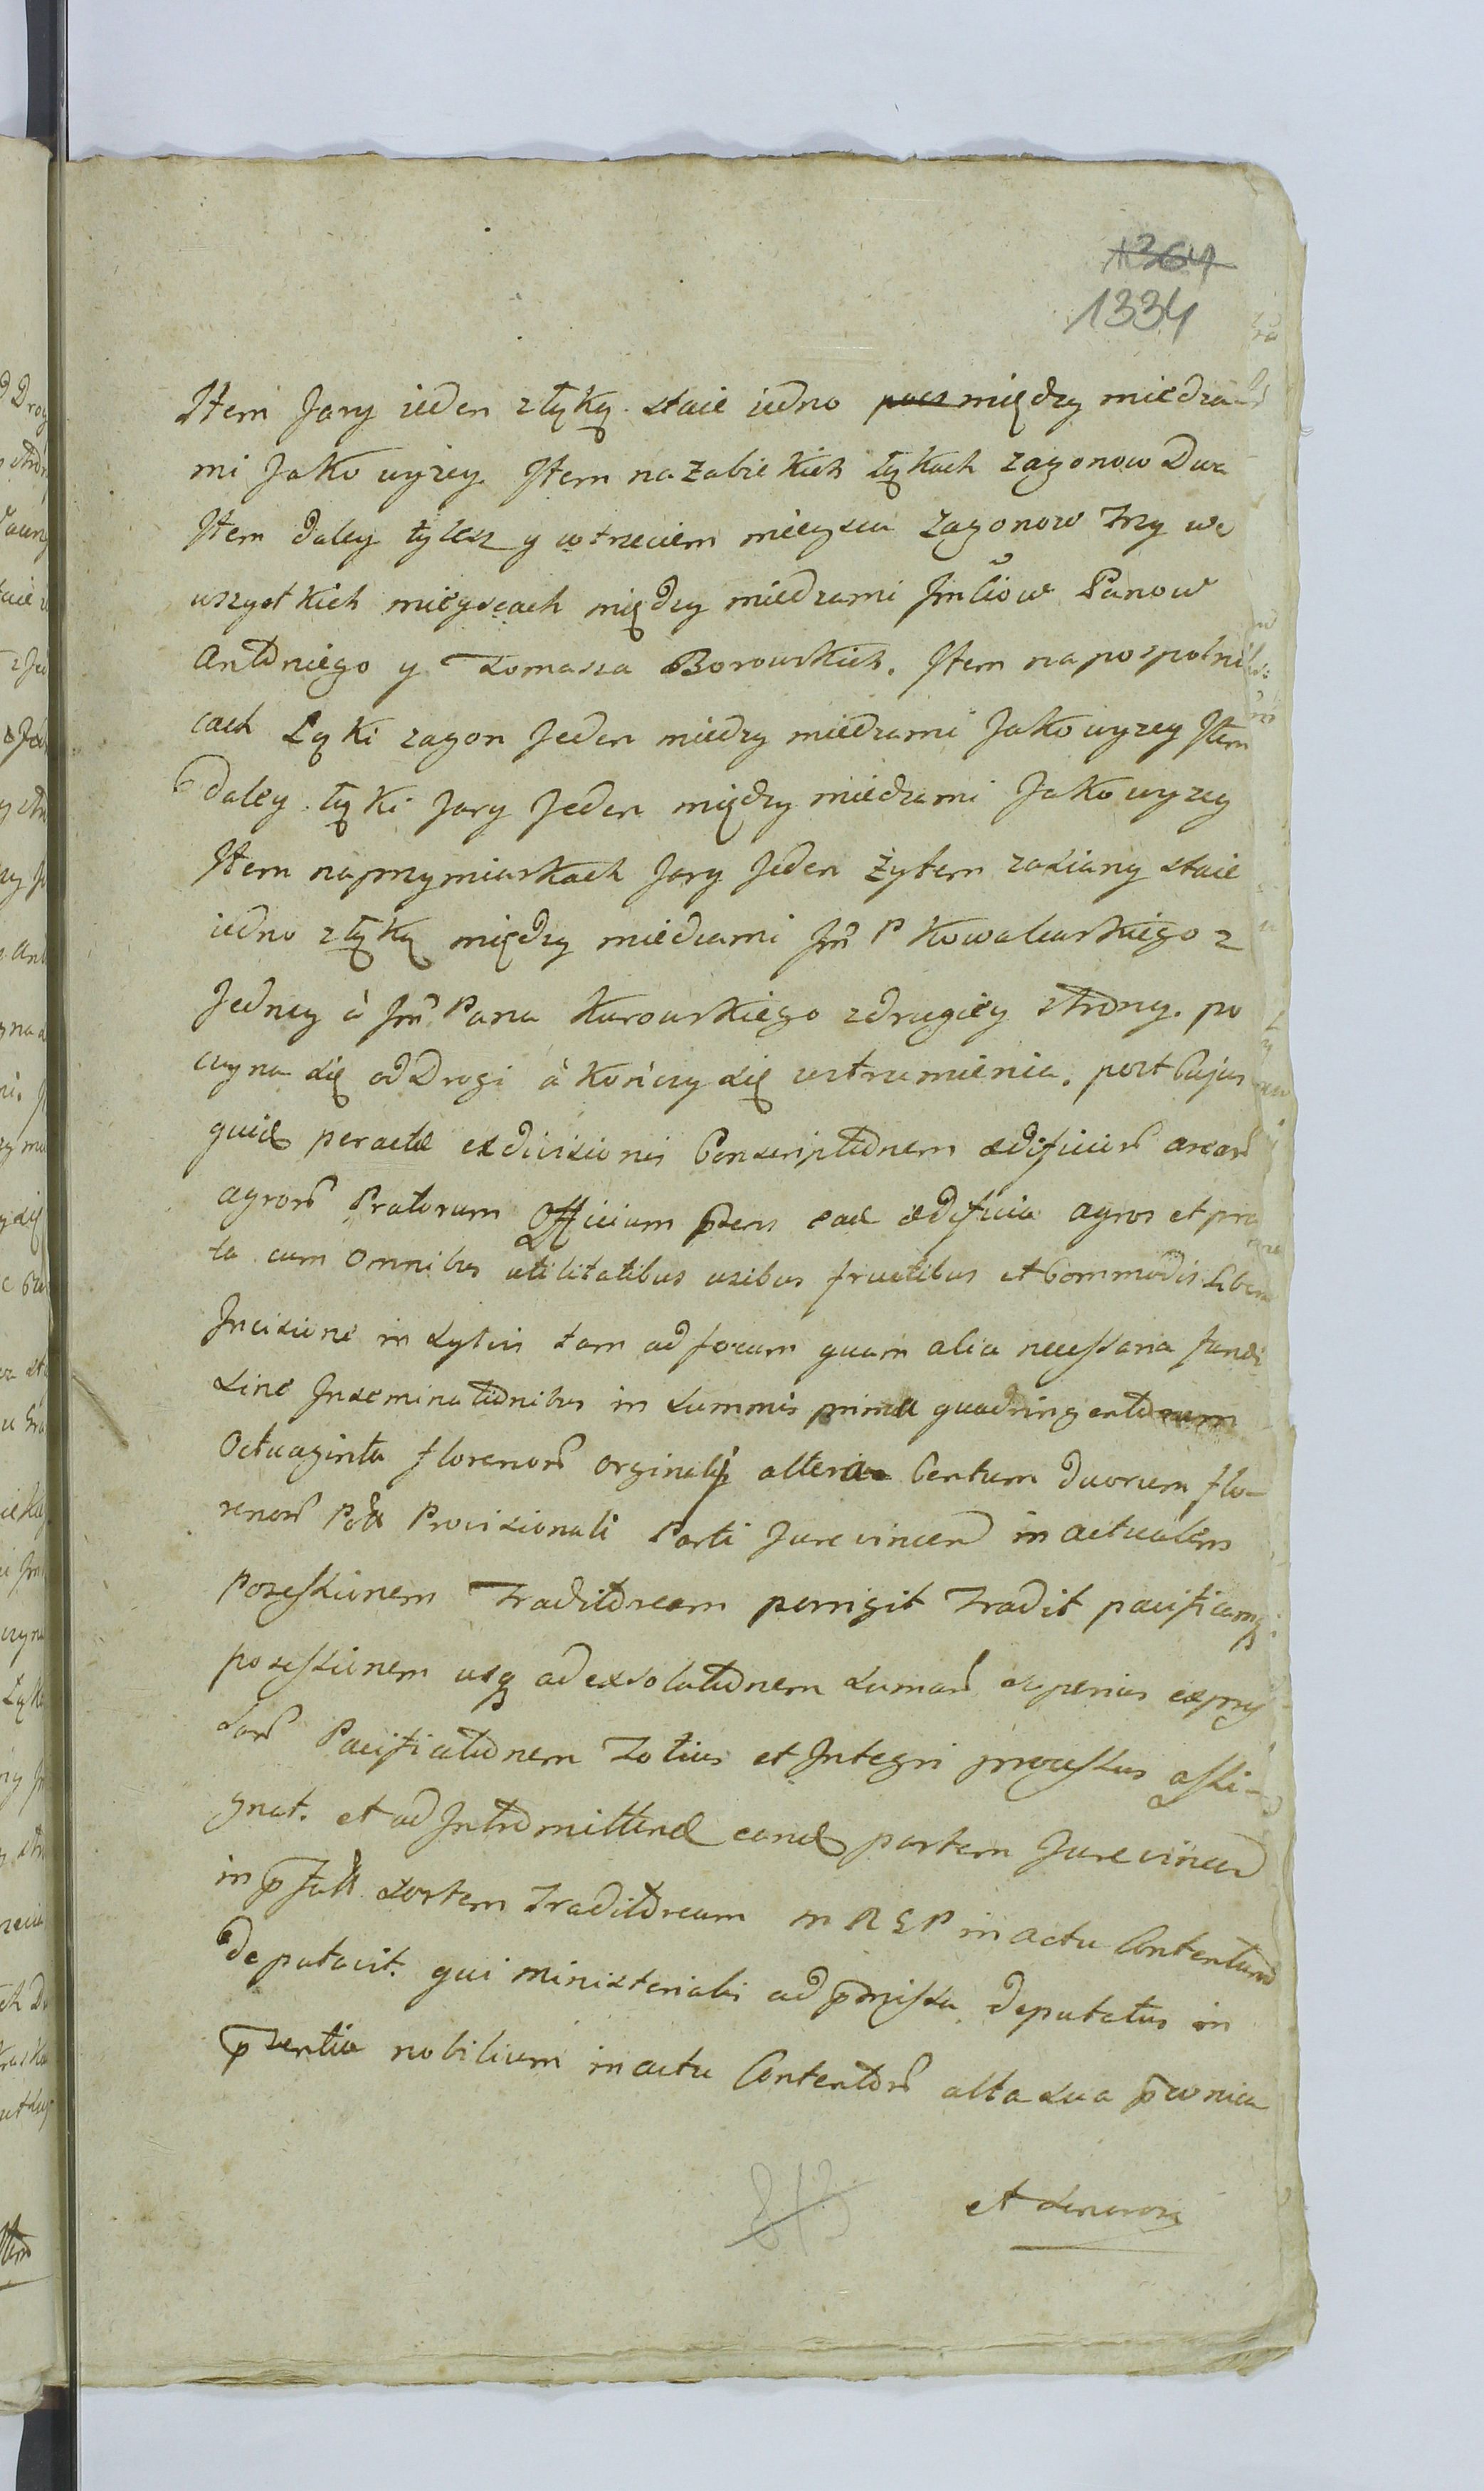 1364
1334
Item Jary ieden złąką staie iedno pocz między miedza
mi Jako wyzey. Item na Zabielkich łąkach zagonow Dwa
Item daley tylesz y w trzeciem mieyscu zagonow Trzy we
wszystkich mieyscach między miedzami Jmciow Panow
Antoniego y Tomasza Borowskich. Item na pospolni
cach Łąki zagon Jeden miedzy miedzami Jako wyzey Item
daley łąki Jary Jeden między miedzami Jako wyzey
Item na przymiarkach Jary Jeden żytem zasiany staie
iedno z łąką między miedzami Jm P Kowalewskiego z
Jedney à Jm Pana Kurowskiego z drugiey strony. po
czyna się od Drogi à kończy się u strumienia. post Cujus
quid peractæ exdivisionis Conscriptionem ædificior arear
agror Pratorum Officium pns ead ædificia agros et pra
ta cum omnibus utilitatibus usibus fructibus et Commodis Libera
Incisione in sylvis tam ad focum quam alia necessaria fundi
sine Inseminationibus in summis prima quadringentorum
Octuaginta florenor orginalj altera Centum duorum flo-
renor Provisionali Parti Jurevincen in actualem
posessionem Traditoream porrigit Tradit pacificamq
posessionem usq ad exsolutionem sumar superius expres
sar Pacificationem Totius et Integri processus assi-
gnat. et ad Intromittend eand partem Jurevincen
in sortem Traditoream M R G P in actu Contentum
deputavit. qui ministerialis ad pmissa deputatus in
psentia nobilium in actu Contentor alta sua
et sonora
813